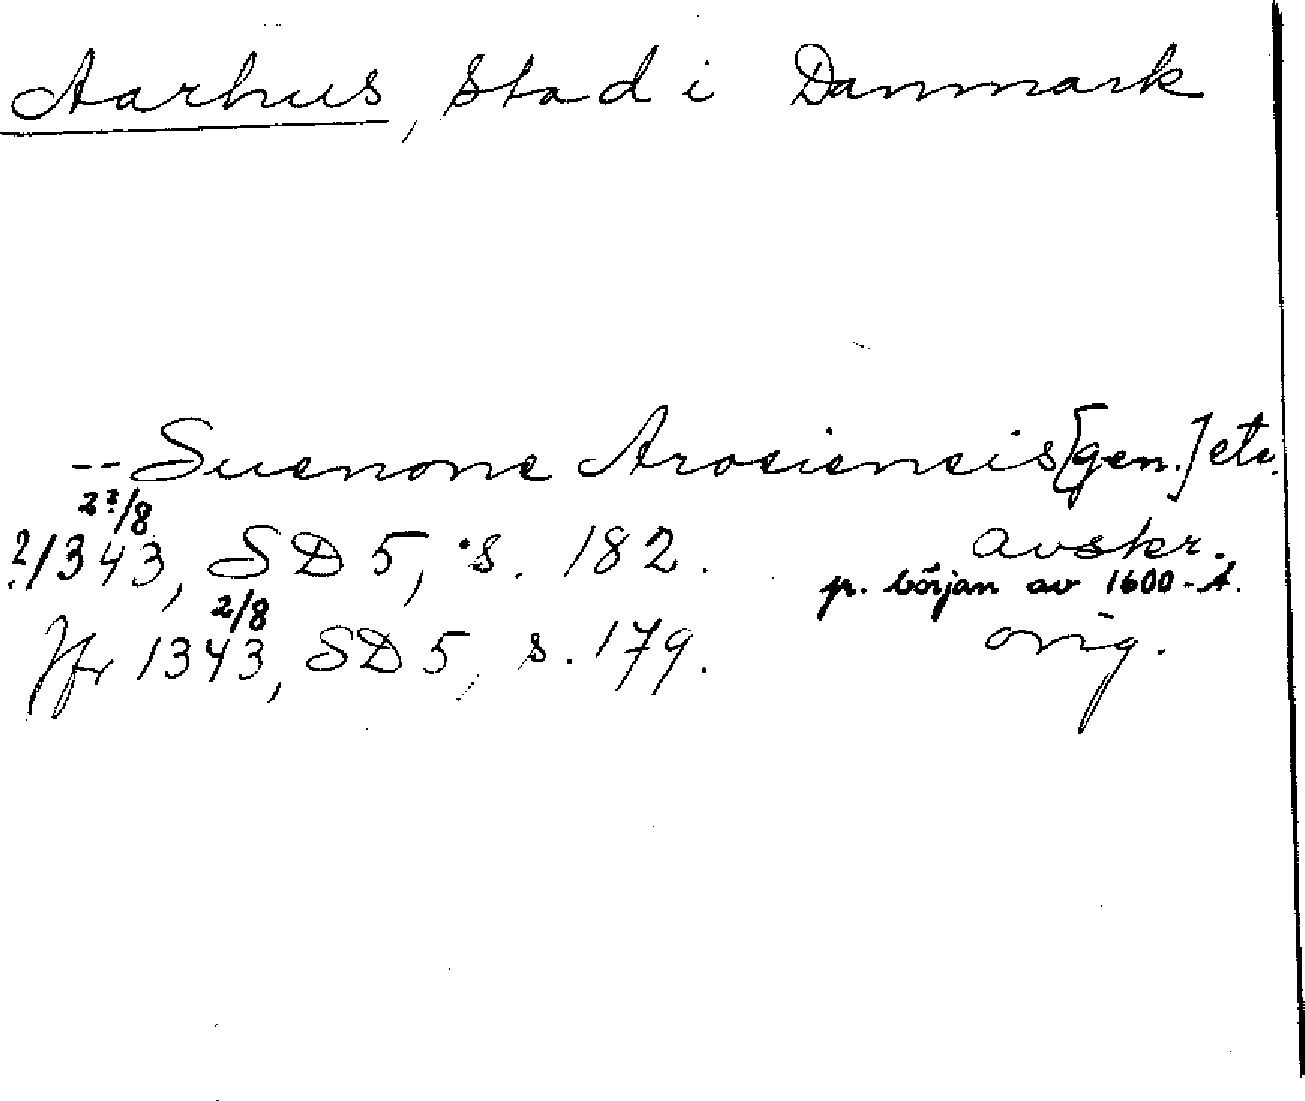 Aarhus, stad i Danmark
-- Suenone Arosiensis [gen.] etc.
2?/8
?/1343, SD 5, s. 182. avskr.
p. början av 1600-t.
2/8
Jfr 1343, SD 5, s. 179. orig.